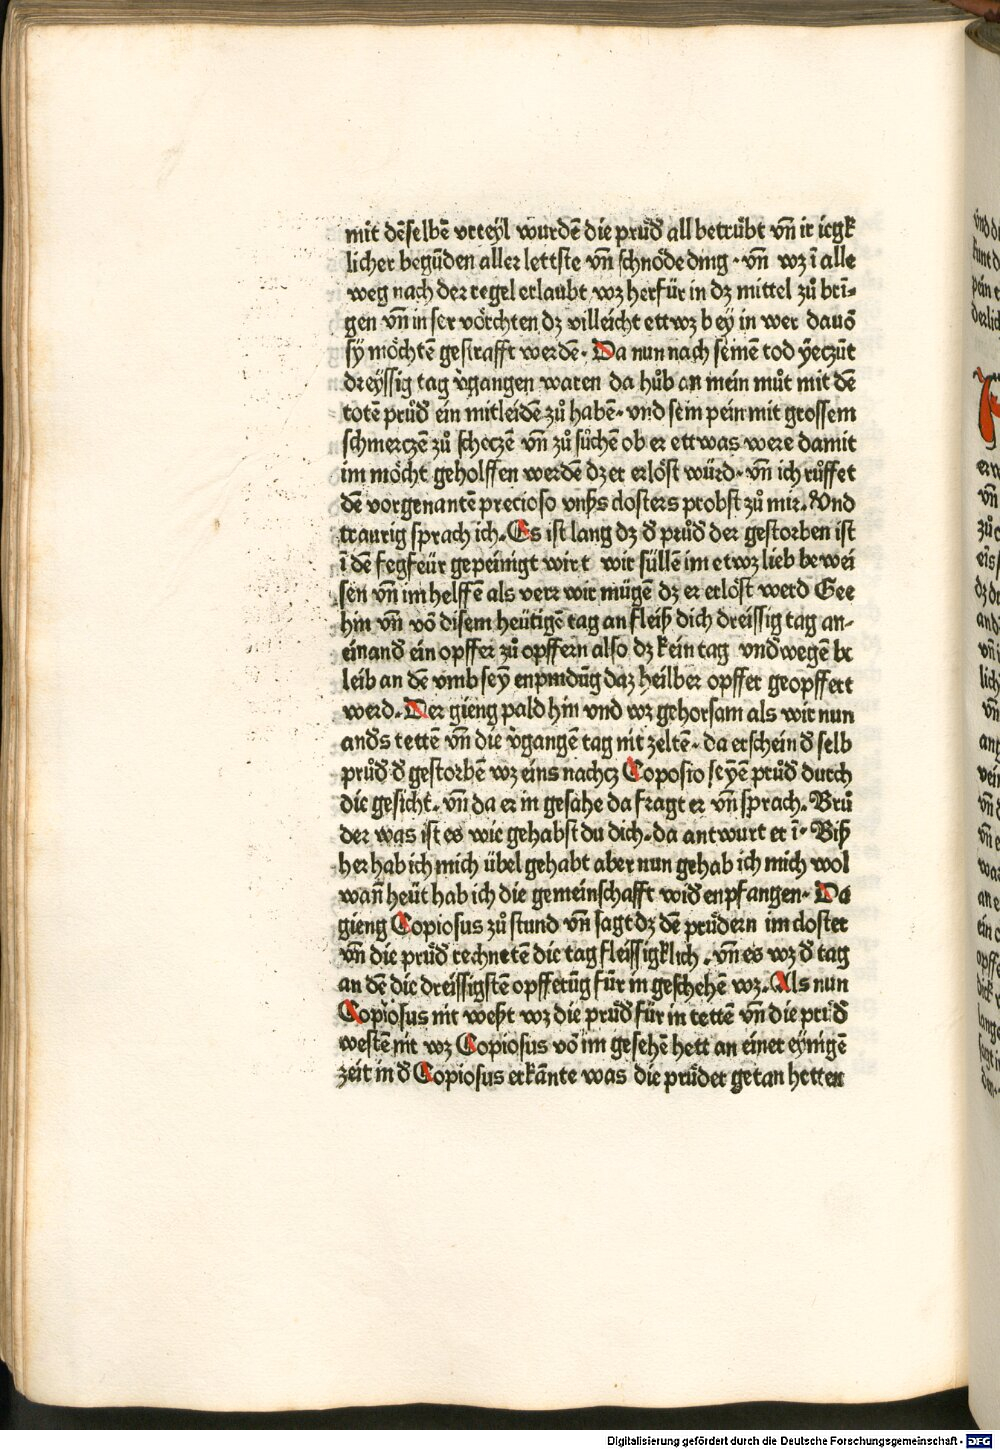 mit dēselbē vrteyl wurdē die průd̄ all betrübt vn̄ ir iegk
licher begūden aller lettste vn̄ schnöde ding · vn̄ wz ī alle
weg nach der regel erlaubt wz herfür in dz mittel zů brī-
gen vn̄ in ser vörchten dz villeicht ettwz bey in wer dauō
sy möchtē gestrafft werdē · Da nun nach seinē tod yeczūt
dreyssig tag v̄gangen waren da hůb an mein můt mit dē
totē průd̄ ein mitleidē zů habē · vnd sein pein mit grossem
schmerczē zů scheczē vn̄ zů sůchē ob er ettwas were damit
im möcht geholffen werdē dz er erlöst würd · vn̄ ich růffet
dē vorgenantē precioso vnßs closters probst zů mir. Vnd
traurig sprach ich. Es ist lang dz d̄ průd̄ der gestorben ist
ī dē fegfeür gepeinigt wirt wir süllē im etwz lieb bewei
sen vn̄ im helffē als verr wir mügē dz er erlöst werd Gee
hin vn̄ vō disem heütigē tag an fleiß dich dreissig tag an-
einand̄ ein opffer zů opffern also dz kein tag vnd̄wegē be
leib an dē vmb seyn enpindūg daz heilber opffer geopffert
werd. Der gieng pald hin vnd wz gehorsam als wir nun
and̄s tettē vn̄ die v̄gangē tag nit zeltē · da erschein d̄ selb
průd̄ d̄ gestorbē wz eins nachcz Coposio seyē průd̄ durch
die gesicht. vn̄ da er in gesahe da fragt er vn̄ sprach. Brů
der was ist es wie gehabst du dich. da antwurt er ī · Biß
her hab ich mich übel gehabt aber nun gehab ich mich wol
wan̄ heüt hab ich die gemeinschafft wid̄ enpfangen · Da
gieng Copiosus zů stund vn̄ sagt dz dē prüdern im closter
vn̄ die prüd̄ rechnetē die tag fleissigklich. vn̄ es wz d̄ tag
an dē die dreissigstē opfferūg für in geschehē wz. Als nun
Copiosus nit weßt wz die prüd̄ für in tettē vn̄ die prüd̄
westē nit wz Copiosus vō im gesehē hett an einer eynigē
zeit in d̄ Copiosus erkānte was die prüder getan hetten
Digitalisierung gefördert durch die Deutsche Forschungsgemeinschaft - DFG